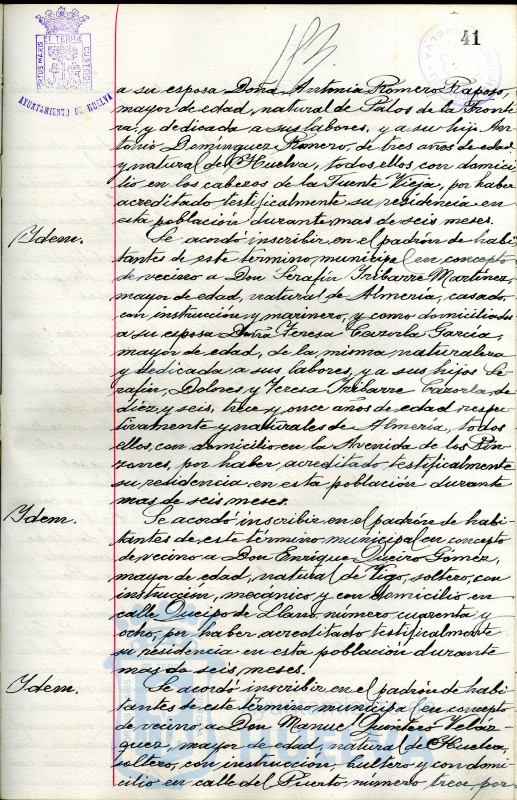 41
PORTUS MARIS ET TERRÆ CUSTODIA
AYUNTAMIENTO DE HUELVA
a su esposa Doña Antonia Romero Raposo,
mayor de edad, natural de Palos de la Fronte
ra, y dedicada a sus labores, y a su hijo An
tonio Dominguez Romero, de tres años de edad
y natural de Huelva, todos ellos, con domici
lio en los cabezos de la Fuente Vieja, por haber
acreditado testificalmente su residencia en
esta población durante mas de seis meses.
Idem.
Se acordó inscribir en el padrón de habi
tantes de este término municipal en concepto
de vecino a Don Serafín Iribarre Martinez,
mayor de edad, natural de Almería, casado,
con instrucción y marinero, y como domiciliados
a su esposa Doña Teresa Cazorla García,
mayor de edad, de la misma naturaleza
y dedicada a sus labores, y a sus hijos Se
rafín, Dolores y Teresa Iribarre Cazorla, de
diez y seis, trece y once años de edad respec
tivamente y naturales de Almería, todos
ellos, con domicilio en la Avenida de los Pin
zones, por haber acreditado testificalmente
su residencia en esta población durante
mas de seis meses.
Idem.
Se acordó inscribir en el padrón de habi
tantes de este término municipal en concepto
de vecino a Don Enrique Queiro Gómez,
mayor de edad, natural de Vigo, soltero, con
instrucción, mecánico y con domicilio en
calle Queipo de Llano, número cuarenta y
ocho, por haber acreditado testificalmente
su residencia en esta población durante
mas de seis meses.
Idem.
Se acordó inscribir en el padrón de habi
tantes de este término municipal en concepto
de vecino a Don Manuel Quintero Veláz
quez, mayor de edad, natural de Huelva,
soltero, con instrucción, bultero y con domi
cilio en calle del Puerto, número trece, por